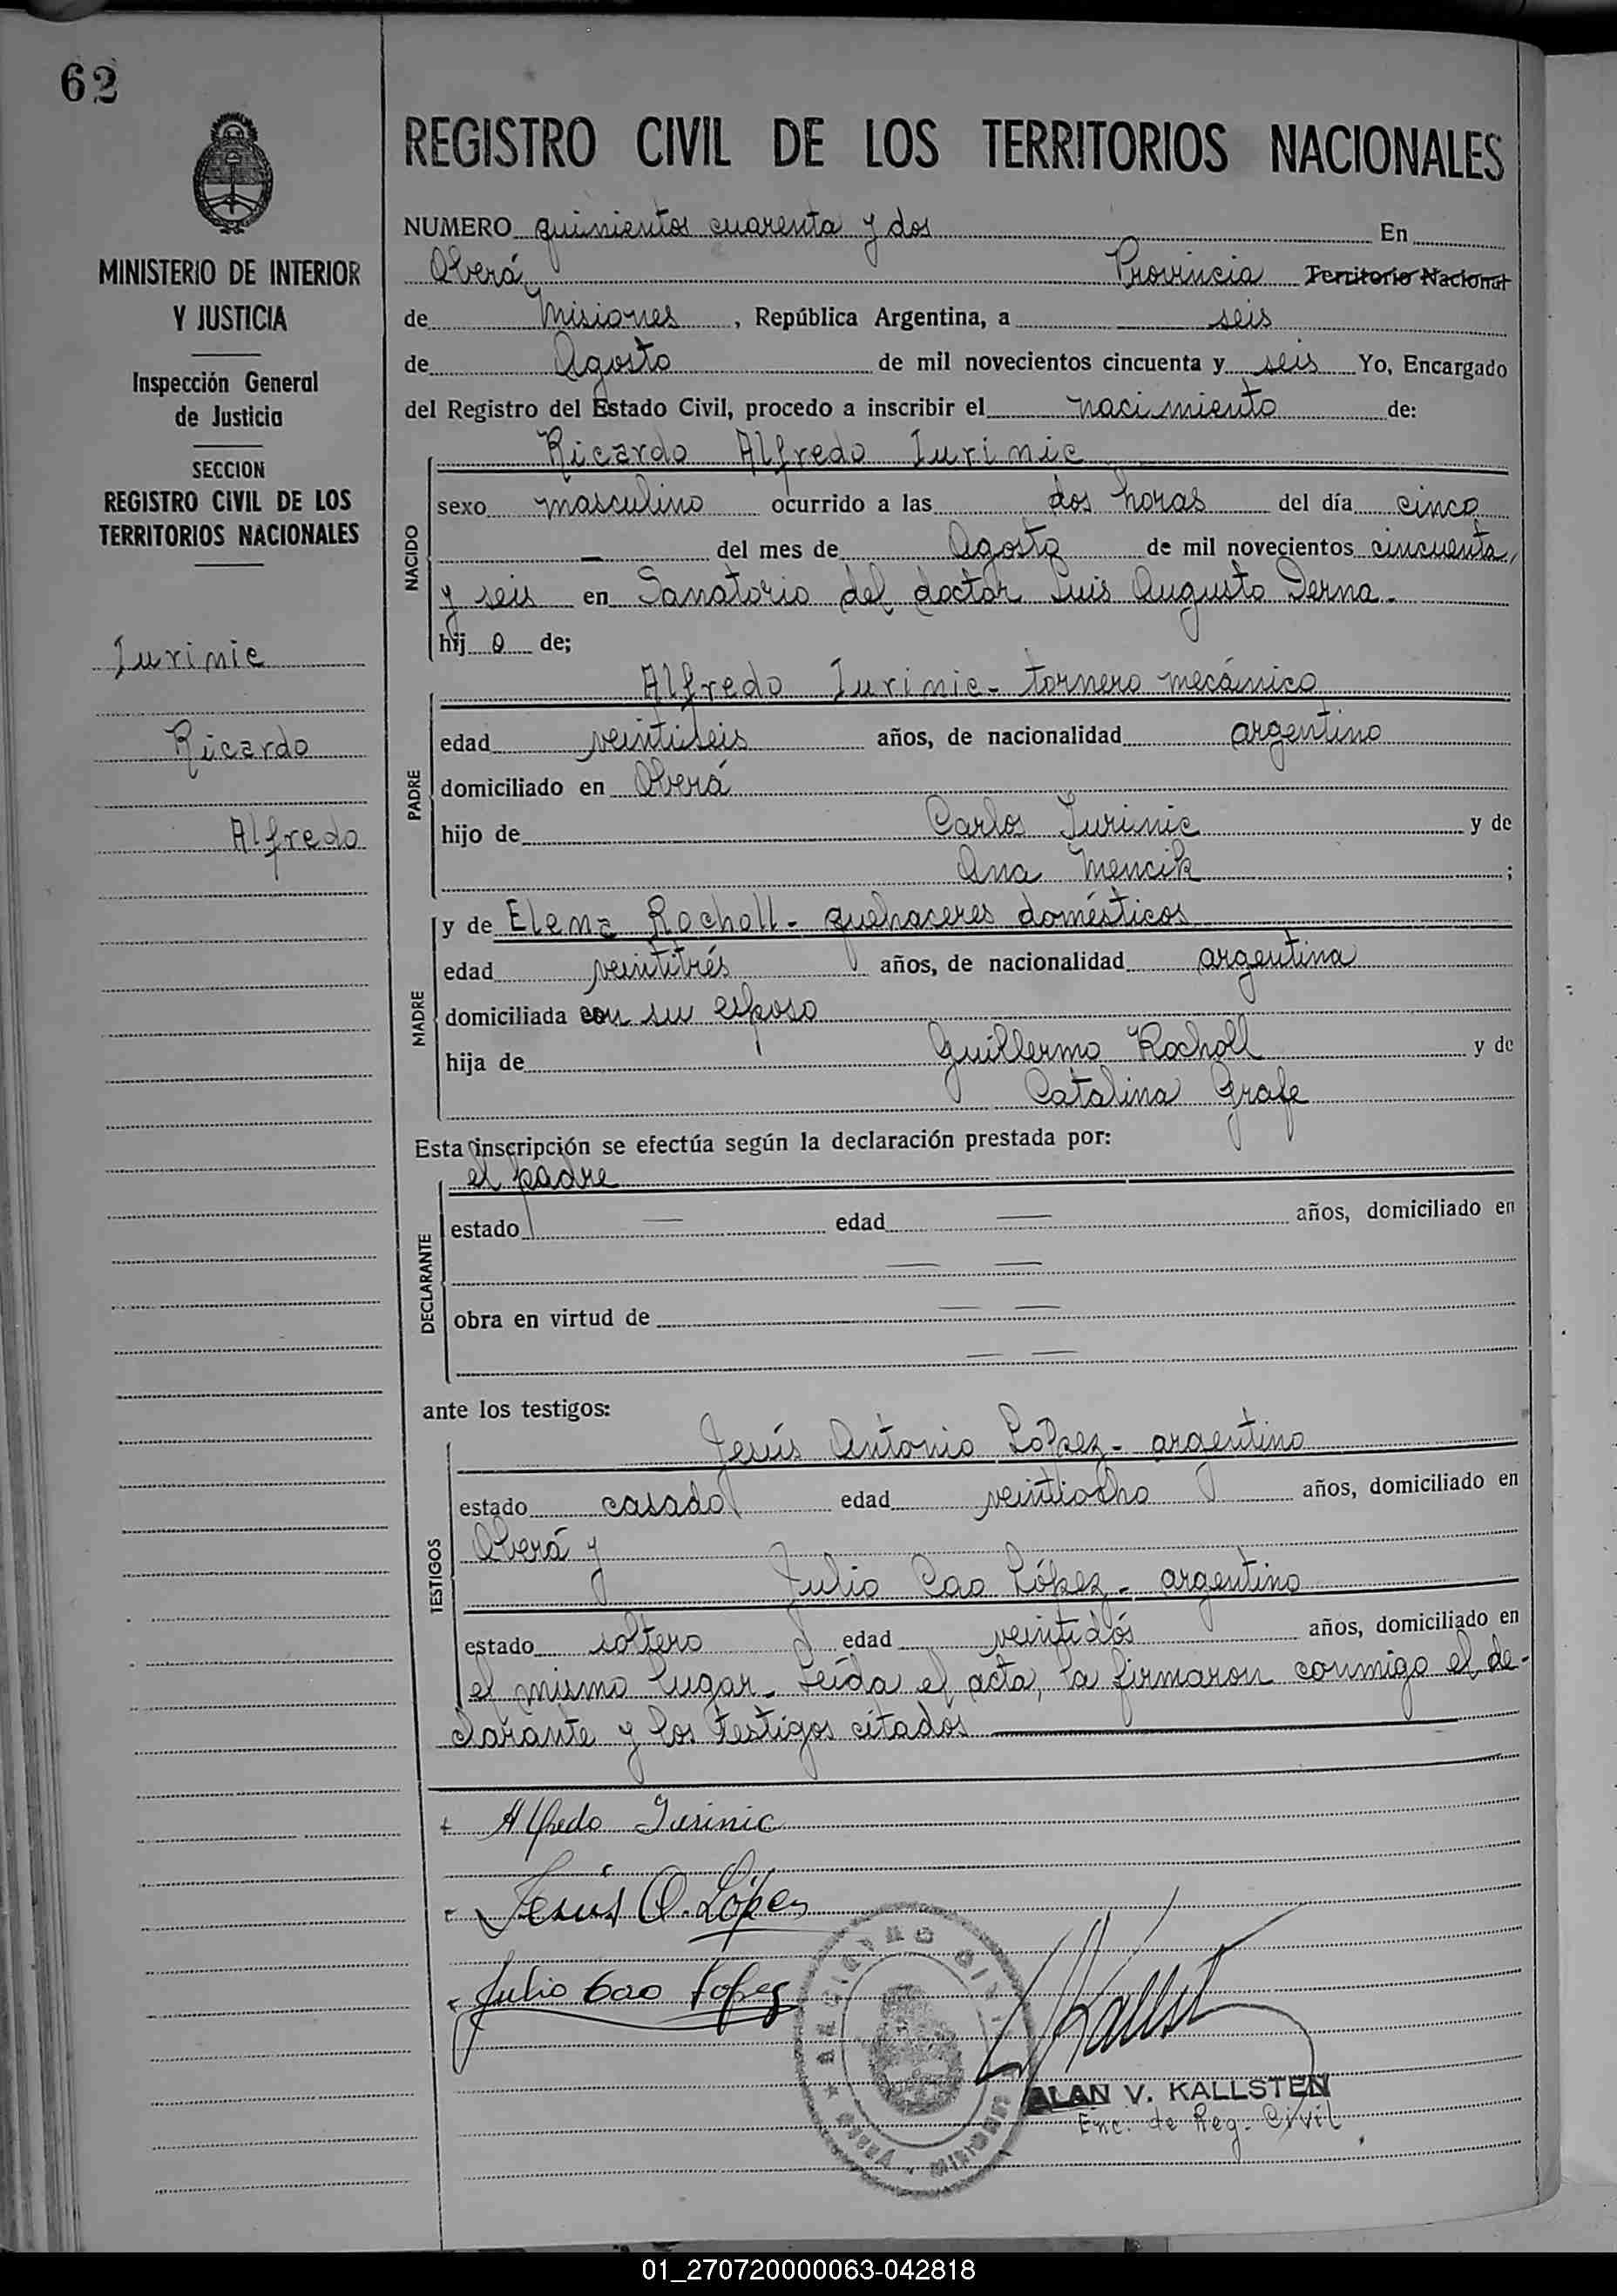 62
REGISTRO CIVIL DE LOS TERRITORIOS NACIONALES
MINISTERIO DE INTERIOR
Y JUSTICIA
Inspección General
de Justicia
SECCION
REGISTRO CIVIL DE LOS
TERRITORIOS NACIONALES
Iurinic
Ricardo
Alfredo
NUMERO quinientos cuarenta y dos En
Oberá Provincia Territorio Nacional
de Misiones, República Argentina, a seis
de Agosto de mil novecientos cincuenta y seis Yo, Encargado
del Registro del Estado Civil, procedo a inscribir el nacimiento de:
Ricardo Alfredo Iurinic
NACIDO
sexo masculino ocurrido a las dos horas del día cinco
— del mes de Agosto de mil novecientos cincuenta
y seis en Sanatorio del doctor Luis Augusto Derna.-
hij o de;
Alfredo Iurinic - tornero mecánico
PADRE
edad veintiseis años, de nacionalidad argentino
domiciliado en Oberá
hijo de Carlos Iurinic y de
Ana Mencik ;
MADRE
y de Elena Rocholl - quehaceres domésticos
edad veintitrés años, de nacionalidad argentina
domiciliada con su esposo
hija de Guillermo Rocholl y de
Catalina Grafe
Esta inscripción se efectúa según la declaración prestada por:
el padre
DECLARANTE
estado — edad — años, domiciliado en
— —
obra en virtud de — —
— —
ante los testigos:
Jesús Antonio López - argentino
TESTIGOS
estado casado edad veintiocho años, domiciliado en
Oberá y
Julio Cao López - argentino
estado soltero edad veintidós años, domiciliado en
el mismo lugar. Leída el acta, la firmaron conmigo el de-
clarante y los testigos citados
Alfredo Iurinic
Jesús A. López
Julio Cao Lopez
Kallst
ALAN V. KALLSTEN
Enc. de Reg. Civil
REGISTRO CIVIL
OBERÁ - MISIONES
01_270720000063-042818